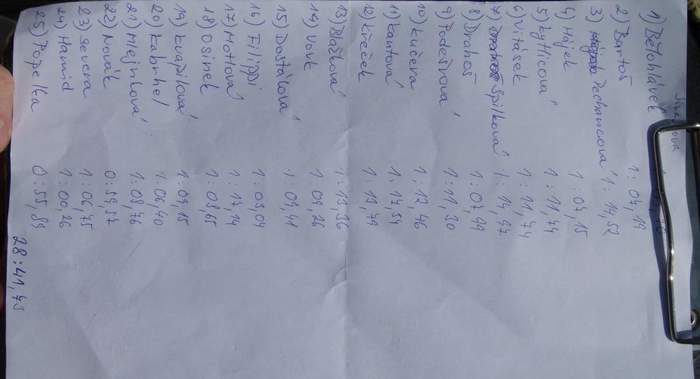 1) Bělohlávek
2) Bartoš 1:04,19
3) Pechancová 1:14,52
4) Hájek 1:07,15
5) Lyticová 1:11,44
6) Vitásek 1:11,74
7) Spilková 1:14,97
8) Drahoš 1:07,49
9) Podešvová 1:11,30
10) Kučera 1:12,46
11) Kantová 1:17,54
12) Křeček 1:17,79
13) Blašková 1:13,36
14) Vovk 1:09,26
15) Dostálová 1:09,41
16) Filippi 1:03,04
17) Mottlová 1:12,14
18) Osinek 1:08,65
19) Kvapilová 1:07,15
20) Kabrhel 1:06,40
21) Mlejnková 1:08,76
22) Novák 0:59,57
23) Severa 1:06,75
24) Hamid 1:00,26
25) Popelka 0:55,89
28:41,75